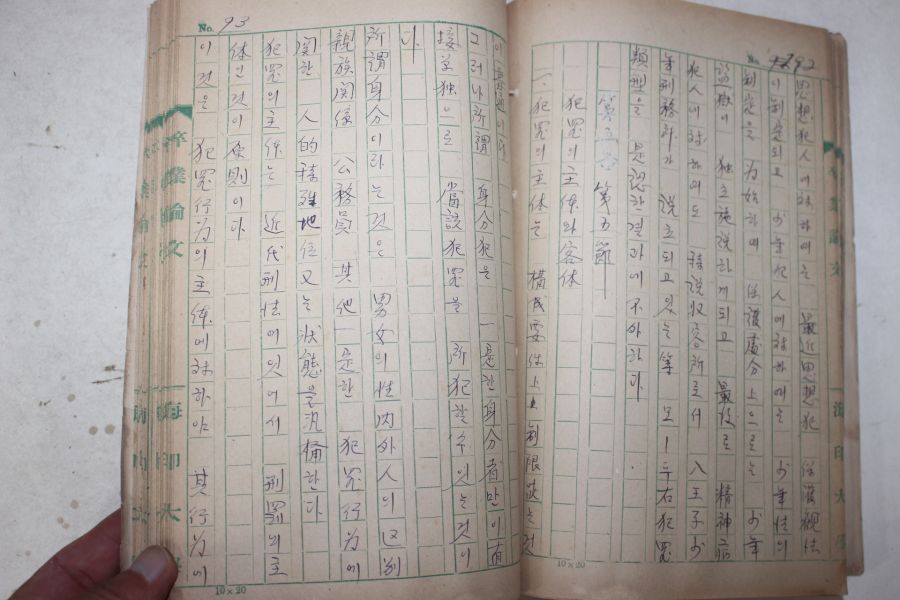 No. 92
思想犯人에 対하여는 最近 思想犯 保護観法
이 制定되고 少年犯人에 対하여는 少年法의
制定을 為始하여 保護處分上으로는 少年
監獄이 独立施設하게 되고 最後로 精神病
犯人에 対하여도 特設収容所로서 八王子少
年刑務所가 設立되고 있는 等 모ー두 右 犯罪
類型을 是認한 結果에 不外하다.
第五節
犯罪의 主体와 客体
一、犯罪의 主体는 構成要件上 制限없는 것
10×20
No. 93
이 普通이다
그러나 所謂 身分犯은 一定한 身分者만이 直
接 単独으로 當該犯罪를 所犯할 수 잇는 것이
다
所謂 身分이라는 것은 男女의 性 内外人의 区別
親族関係 公務員 其他 一定한 犯罪行为에
関한 人的 特殊地位 又는 狀態를 汎稱한다
犯罪의 主体는 近代刑法에 잇어서 刑罰의 主
体인 것이 原則이다
이것은 犯罪行为의 主体에 対하야 其行为에
10×20
卒業論文
海印大